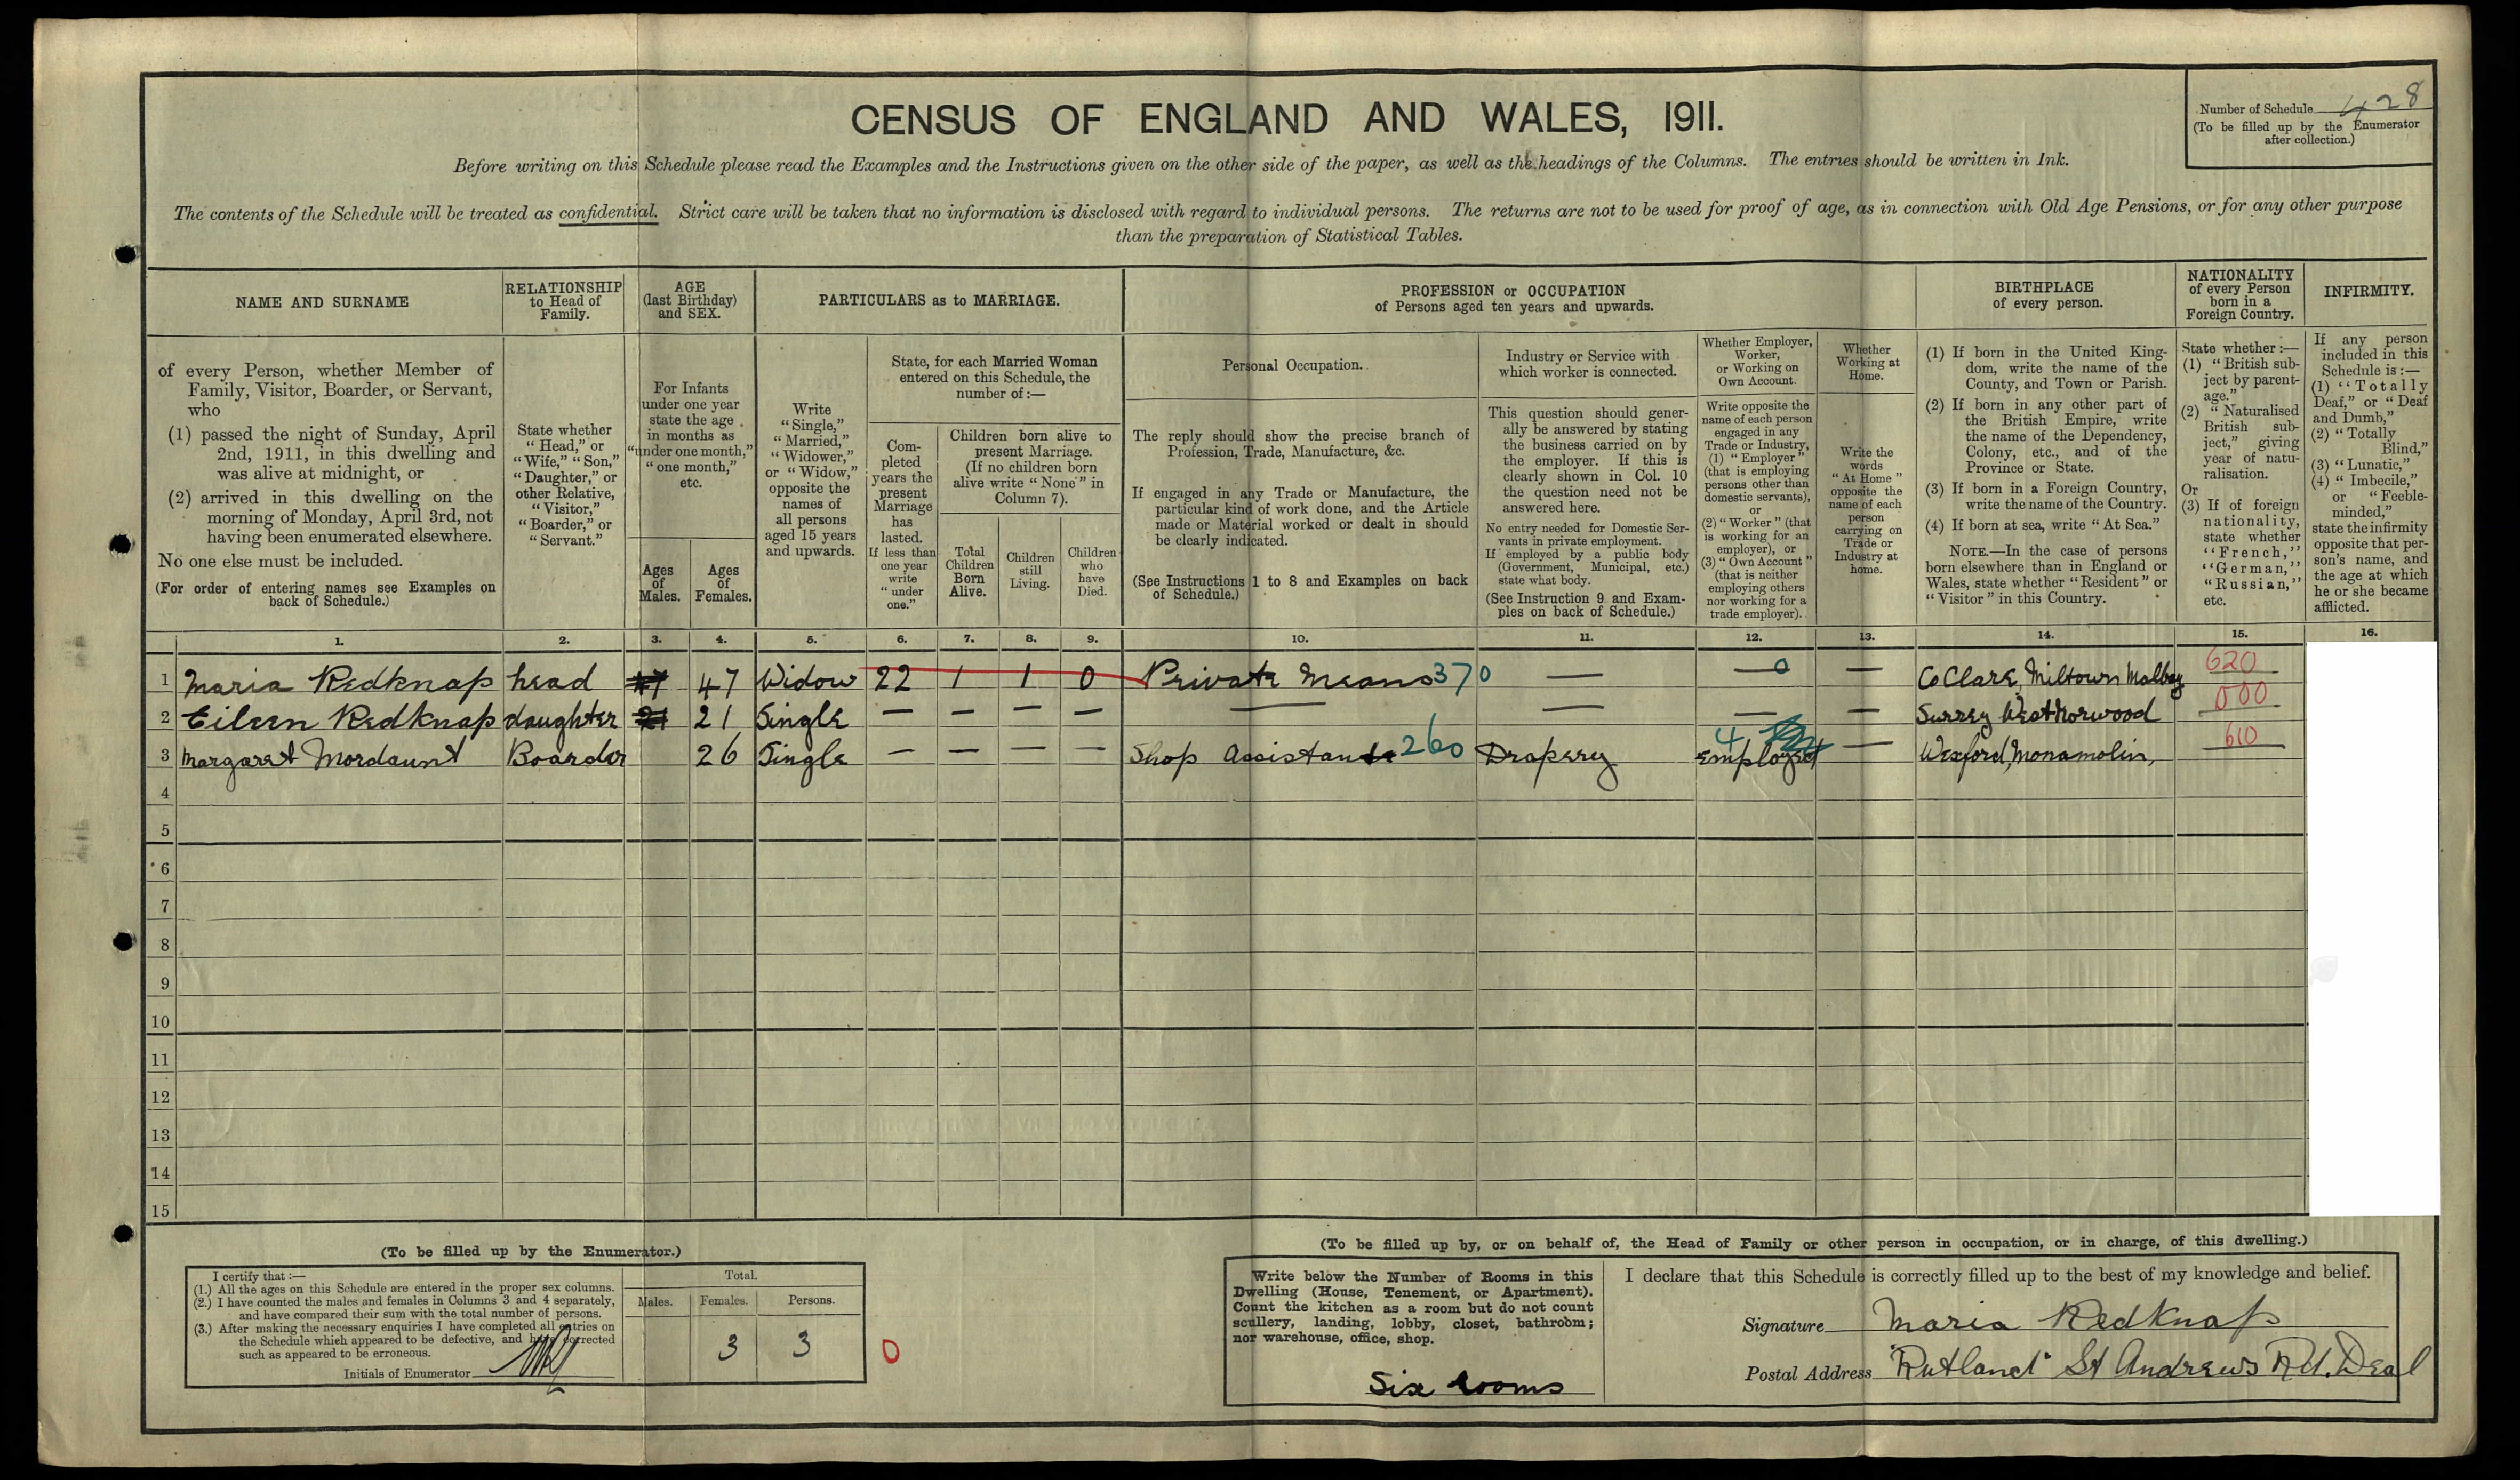 CENSUS OF ENGLAND AND WALES, 1911.
Number of Schedule 428
(To be filled up by the Enumerator
after collection.)
Before writing on this Schedule please read the Examples and the Instructions given on the other side of the paper, as well as the headings of the Columns. The entries should be written in Ink.
The contents of the Schedule will be treated as confidential. Strict care will be taken that no information is disclosed with regard to individual persons. The returns are not to be used for proof of age, as in connection with Old Age Pensions, or for any other purpose
than the preparation of Statistical Tables.
NAME AND SURNAME
RELATIONSHIP
to Head of
Family.
AGE
(last Birthday)
and SEX.
PARTICULARS as to MARRIAGE.
PROFESSION or OCCUPATION
of Persons aged ten years and upwards.
BIRTHPLACE
of every person.
NATIONALITY
of every Person
born in a
Foreign Country.
INFIRMITY.
of every Person, whether Member of
Family, Visitor, Boarder, or Servant,
who
(1) passed the night of Sunday, April
2nd, 1911, in this dwelling and
was alive at midnight, or
(2) arrived in this dwelling on the
morning of Monday, April 3rd, not
having been enumerated elsewhere.
No one else must be included.
(For order of entering names see Examples on
back of Schedule.)
State whether
"Head," or
"Wife," "Son,"
"Daughter," or
other Relative,
"Visitor,"
"Boarder," or
"Servant."
For Infants
under one year
state the age
in months as
"under one month,"
"one month,"
etc.
Ages
of
Males.
Ages
of
Females.
Write
"Single,"
"Married,"
"Widower,"
or "Widow,"
opposite the
names of
all persons
aged 15 years
and upwards.
State, for each Married Woman
entered on this Schedule, the
number of :—
Com-
pleted
years the
present
Marriage
has
lasted.
If less than
one year
write
"under
one."
Children born alive to
present Marriage.
(If no children born
alive write "None" in
Column 7).
Total
Children
Born
Alive.
Children
still
Living.
Children
who
have
Died.
Personal Occupation.
The reply should show the precise branch of
Profession, Trade, Manufacture, &c.
If engaged in any Trade or Manufacture, the
particular kind of work done, and the Article
made or Material worked or dealt in should
be clearly indicated.
(See Instructions 1 to 8 and Examples on back
of Schedule.)
Industry or Service with
which worker is connected.
This question should gener-
ally be answered by stating
the business carried on by
the employer. If this is
clearly shown in Col. 10
the question need not be
answered here.
No entry needed for Domestic Ser-
vants in private employment.
If employed by a public body
(Government, Municipal, etc.)
state what body.
(See Instruction 9 and Exam-
ples on back of Schedule.)
Whether Employer,
Worker,
or Working on
Own Account.
Write opposite the
name of each person
engaged in any
Trade or Industry,
(1) "Employer"
(that is employing
persons other than
domestic servants),
or
(2) "Worker" (that
is working for an
employer), or
(3) "Own Account"
(that is neither
employing others
nor working for a
trade employer).
Whether
Working at
Home.
Write the
words
"At Home"
opposite the
name of each
person
carrying on
Trade or
Industry at
home.
(1) If born in the United King-
dom, write the name of the
County, and Town or Parish.
(2) If born in any other part of
the British Empire, write
the name of the Dependency,
Colony, etc., and of the
Province or State.
(3) If born in a Foreign Country,
write the name of the Country.
(4) If born at sea, write "At Sea."
NOTE.—In the case of persons
born elsewhere than in England or
Wales, state whether "Resident" or
"Visitor" in this Country.
State whether :—
(1) "British sub-
ject by parent-
age."
(2) "Naturalised
British sub-
ject," giving
year of natu-
ralisation.
Or
(3) If of foreign
nationality,
state whether
"French,"
"German,"
"Russian,"
etc.
If any person
included in this
Schedule is :—
(1) "Totally
Deaf," or "Deaf
and Dumb,"
(2) "Totally
Blind,"
(3) "Lunatic,"
(4) "Imbecile,"
or "Feeble-
minded,"
state the infirmity
opposite that per-
son's name, and
the age at which
he or she became
afflicted.
1. 2. 3. 4. 5. 6. 7. 8. 9. 10. 11. 12. 13. 14. 15. 16.
1 Maria Redknap head 47 47 Widow 22 1 1 0 Private Means 370 — — 0 — Co Clare, Miltown Malbay 620
2 Eileen Redknap daughter 21 21 Single — — — — — — — — Surrey West Norwood 000
3 Margaret Mordaunt Boarder 26 Single — — — — Shop Assistant 260 Drapery 4 — Wexford, Monamolin, 610
4
5
6
7
8
9
10
11
12
13
14
15
(To be filled up by the Enumerator.)
I certify that :—
(1.) All the ages on this Schedule are entered in the proper sex columns.
(2.) I have counted the males and females in Columns 3 and 4 separately,
and have compared their sum with the total number of persons.
(3.) After making the necessary enquiries I have completed all entries on
the Schedule which appeared to be defective, and have corrected
such as appeared to be erroneous.
Initials of Enumerator
Total.
Males. Females. Persons.
3 3
0
(To be filled up by, or on behalf of, the Head of Family or other person in occupation, or in charge, of this dwelling.)
Write below the Number of Rooms in this
Dwelling (House, Tenement, or Apartment).
Count the kitchen as a room but do not count
scullery, landing, lobby, closet, bathroom;
nor warehouse, office, shop.
Six rooms
I declare that this Schedule is correctly filled up to the best of my knowledge and belief.
Signature Maria Redknap
Postal Address "Rutland" St Andrews Rd. Deal